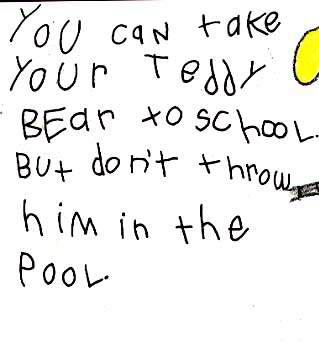 You can take
Your Teddy
BEar to school.
But don't throw
him in the
Pool.